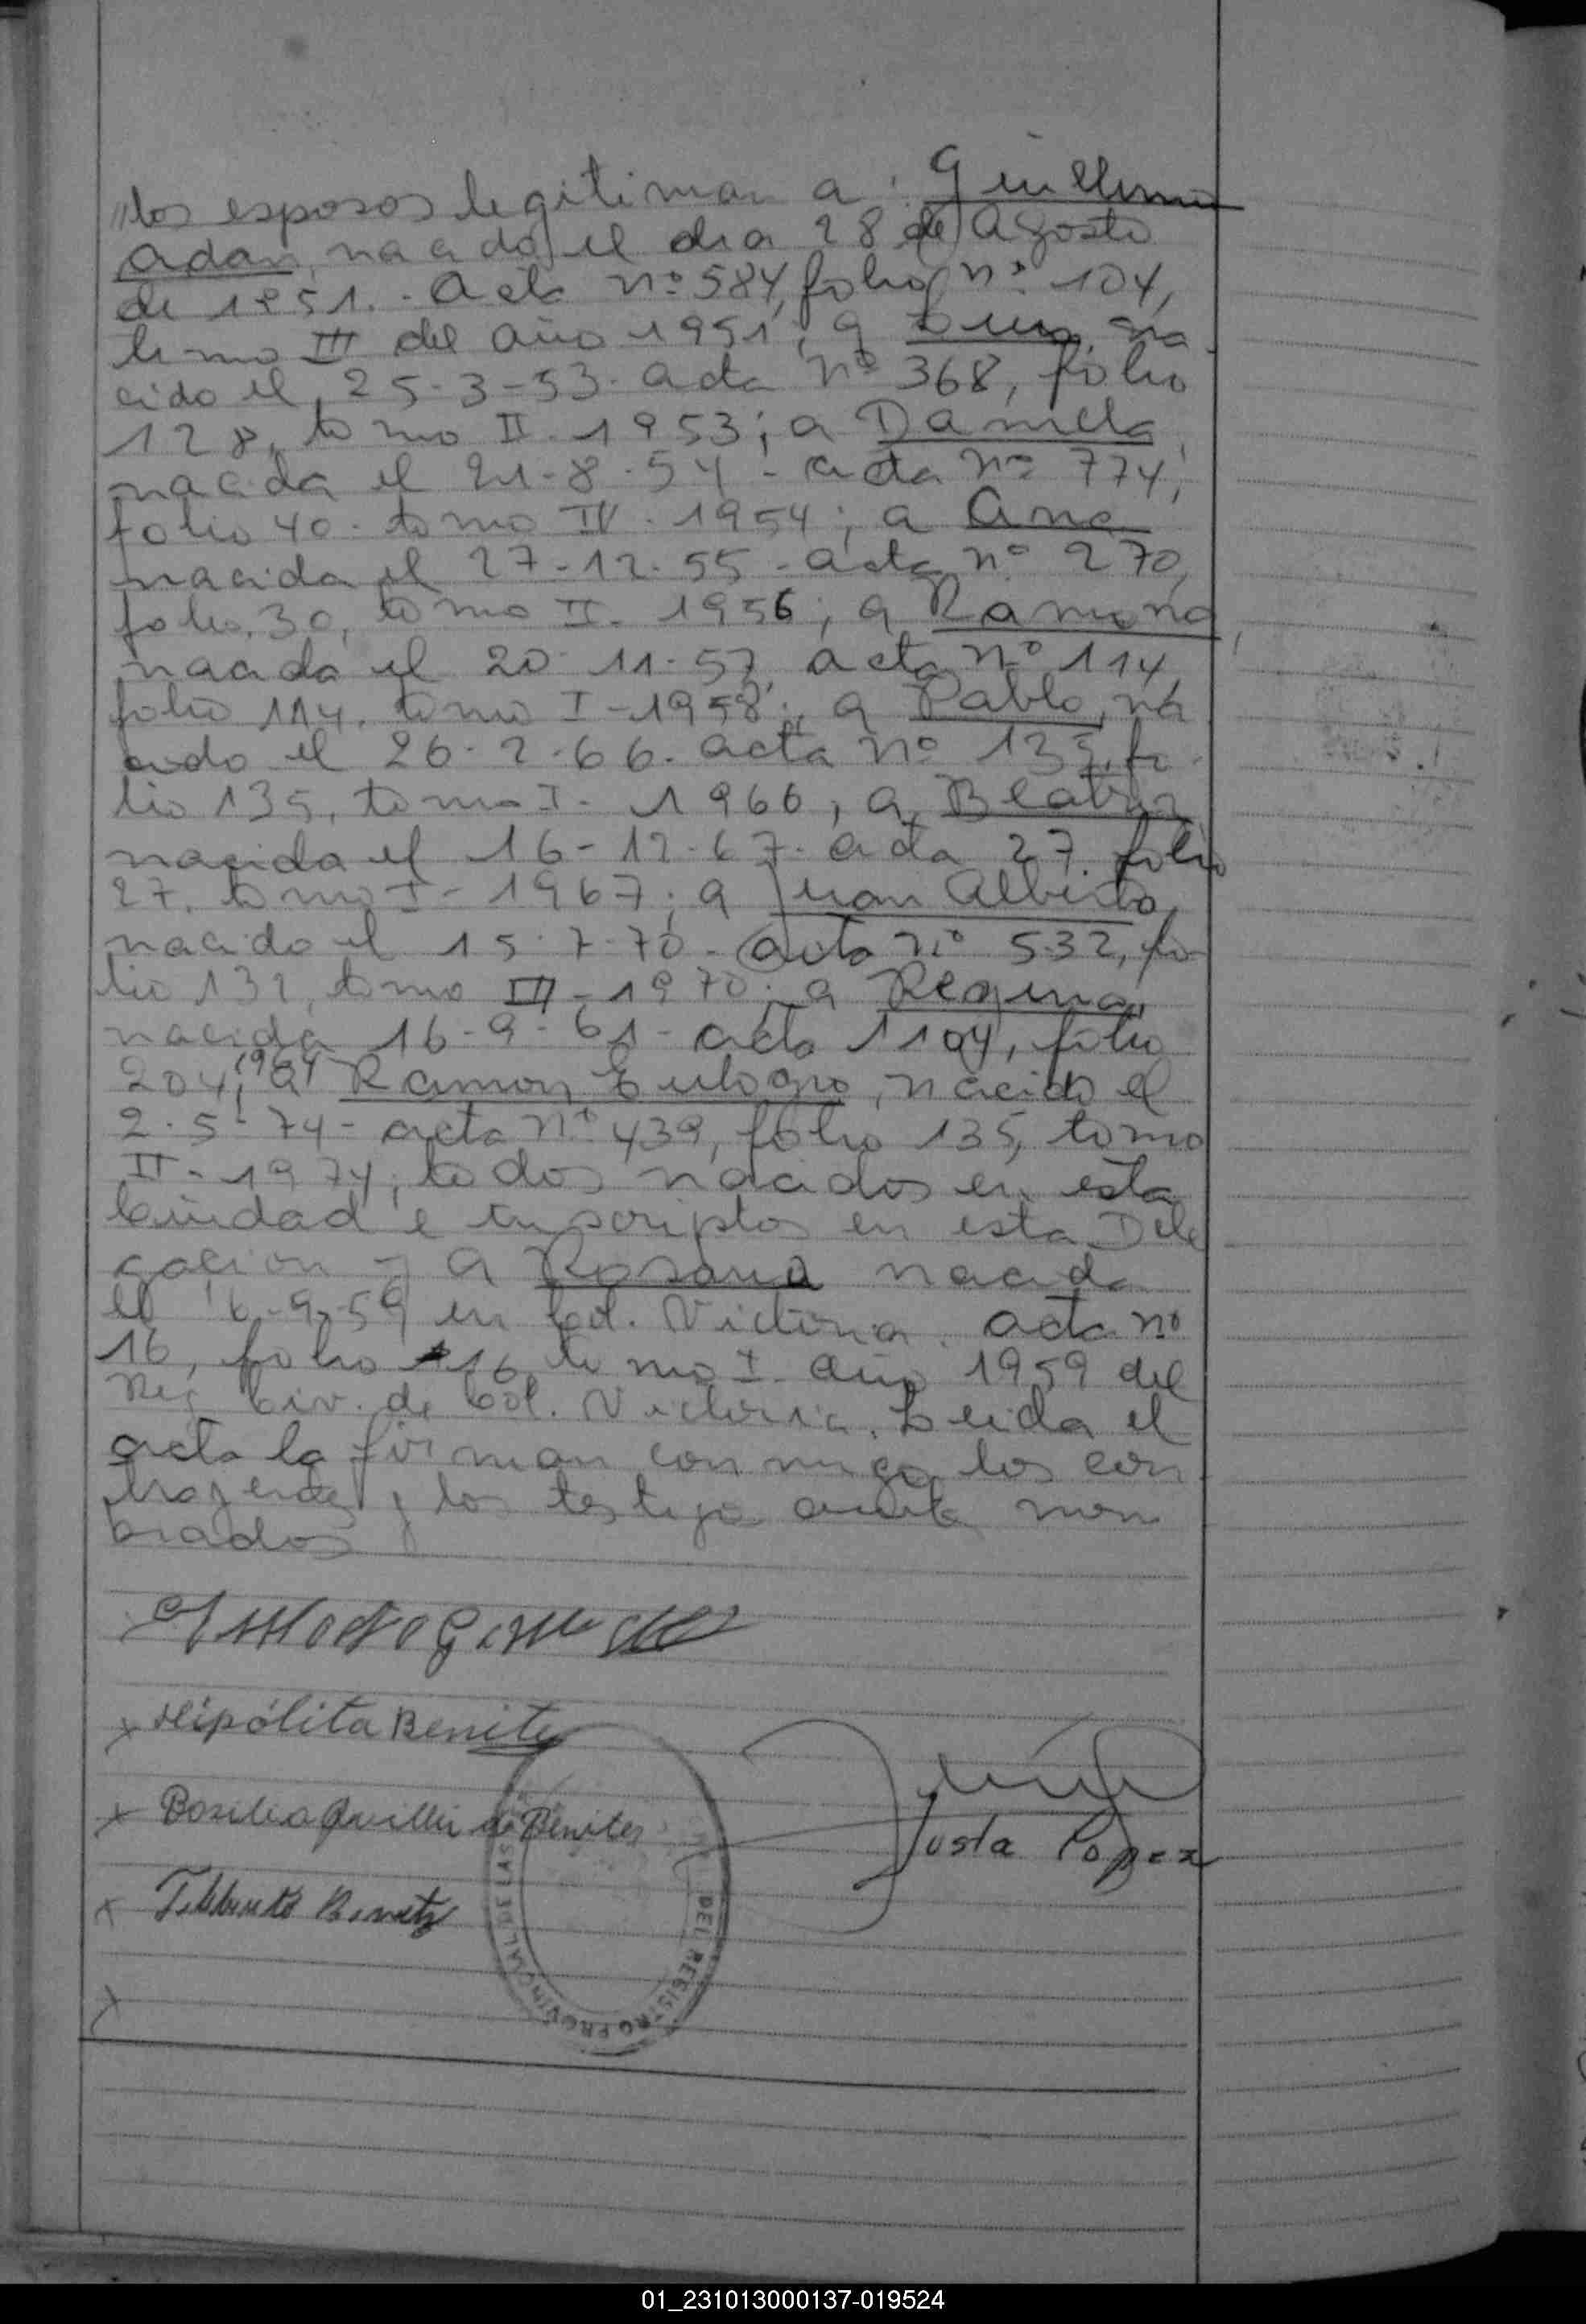 "los esposos legitiman a: Guillermo
Adan, nacido el dia 28 de Agosto
de 1951.- Acta nº 584, folio nº 104,
tomo III del año 1951; a na
cido el 25-3-53. acta nº 368, folio
128, tomo II-1953; a Daniela,
nacida el 21-8-54- acta nº 774,
folio 40- tomo IV-1954; a Ana
nacida el 27-12-55- acta nº 270,
folio 30, tomo II-1956; a Ramona,
nacida el 20-11-57, acta nº 114,
folio 114, tomo I-1958; a Pablo, na
cido el 26-2-66. acta nº 135, fo-
lio 135, tomo I-1966, a Beatriz
nacida el 16-12-67. acta 27 folio
27. tomo I-1967; a Juan Alberto,
nacido el 15-7-70- acta nº 532, fo
lio 132, tomo III-1970; a Regina,
nacida 16-9-61- acta 1104, folio
204, 1961 a Ramon Eulogio, nacido el
2-5-74- acta nº 439, folio 135, tomo
II-1974, todos nacidos en esta
Ciudad e inscriptos en esta Dele
gacion y a Rosana nacida
el 6-9-59 en Col. Victoria. acta nº
16, folio 16, tomo I- año 1959 del
Reg Civ. de Col. Victoria. Leida el
acta la firman conmigo los con
trayentes y los testigos arriba nom
brados
x Hipólita Benitez
x Basilia de Benites
Justa Lopez
x Benitez
x
PROVINCIAL DE LAS
DEL REGISTRO
01_231013000137-019524